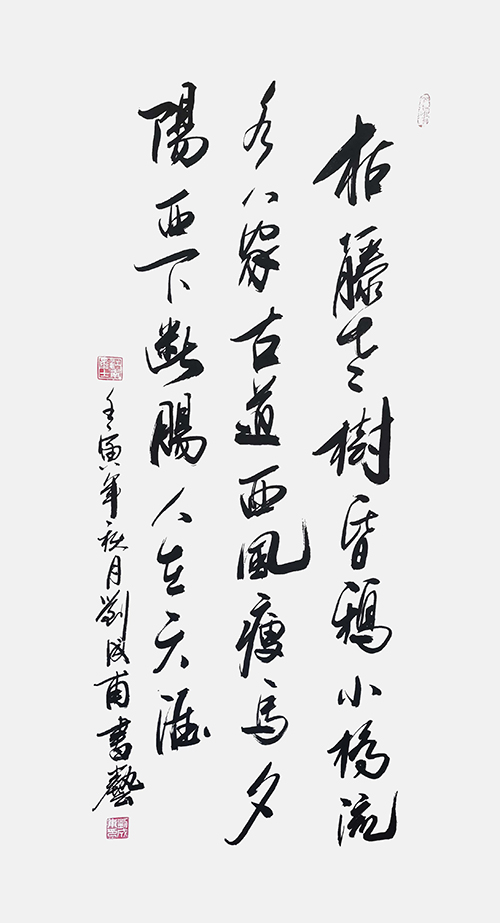 枯藤老樹昏鴉小橋流
水人家古道西風瘦馬夕
陽西下斷腸人在天涯
壬寅年秋月劉成甫書藝